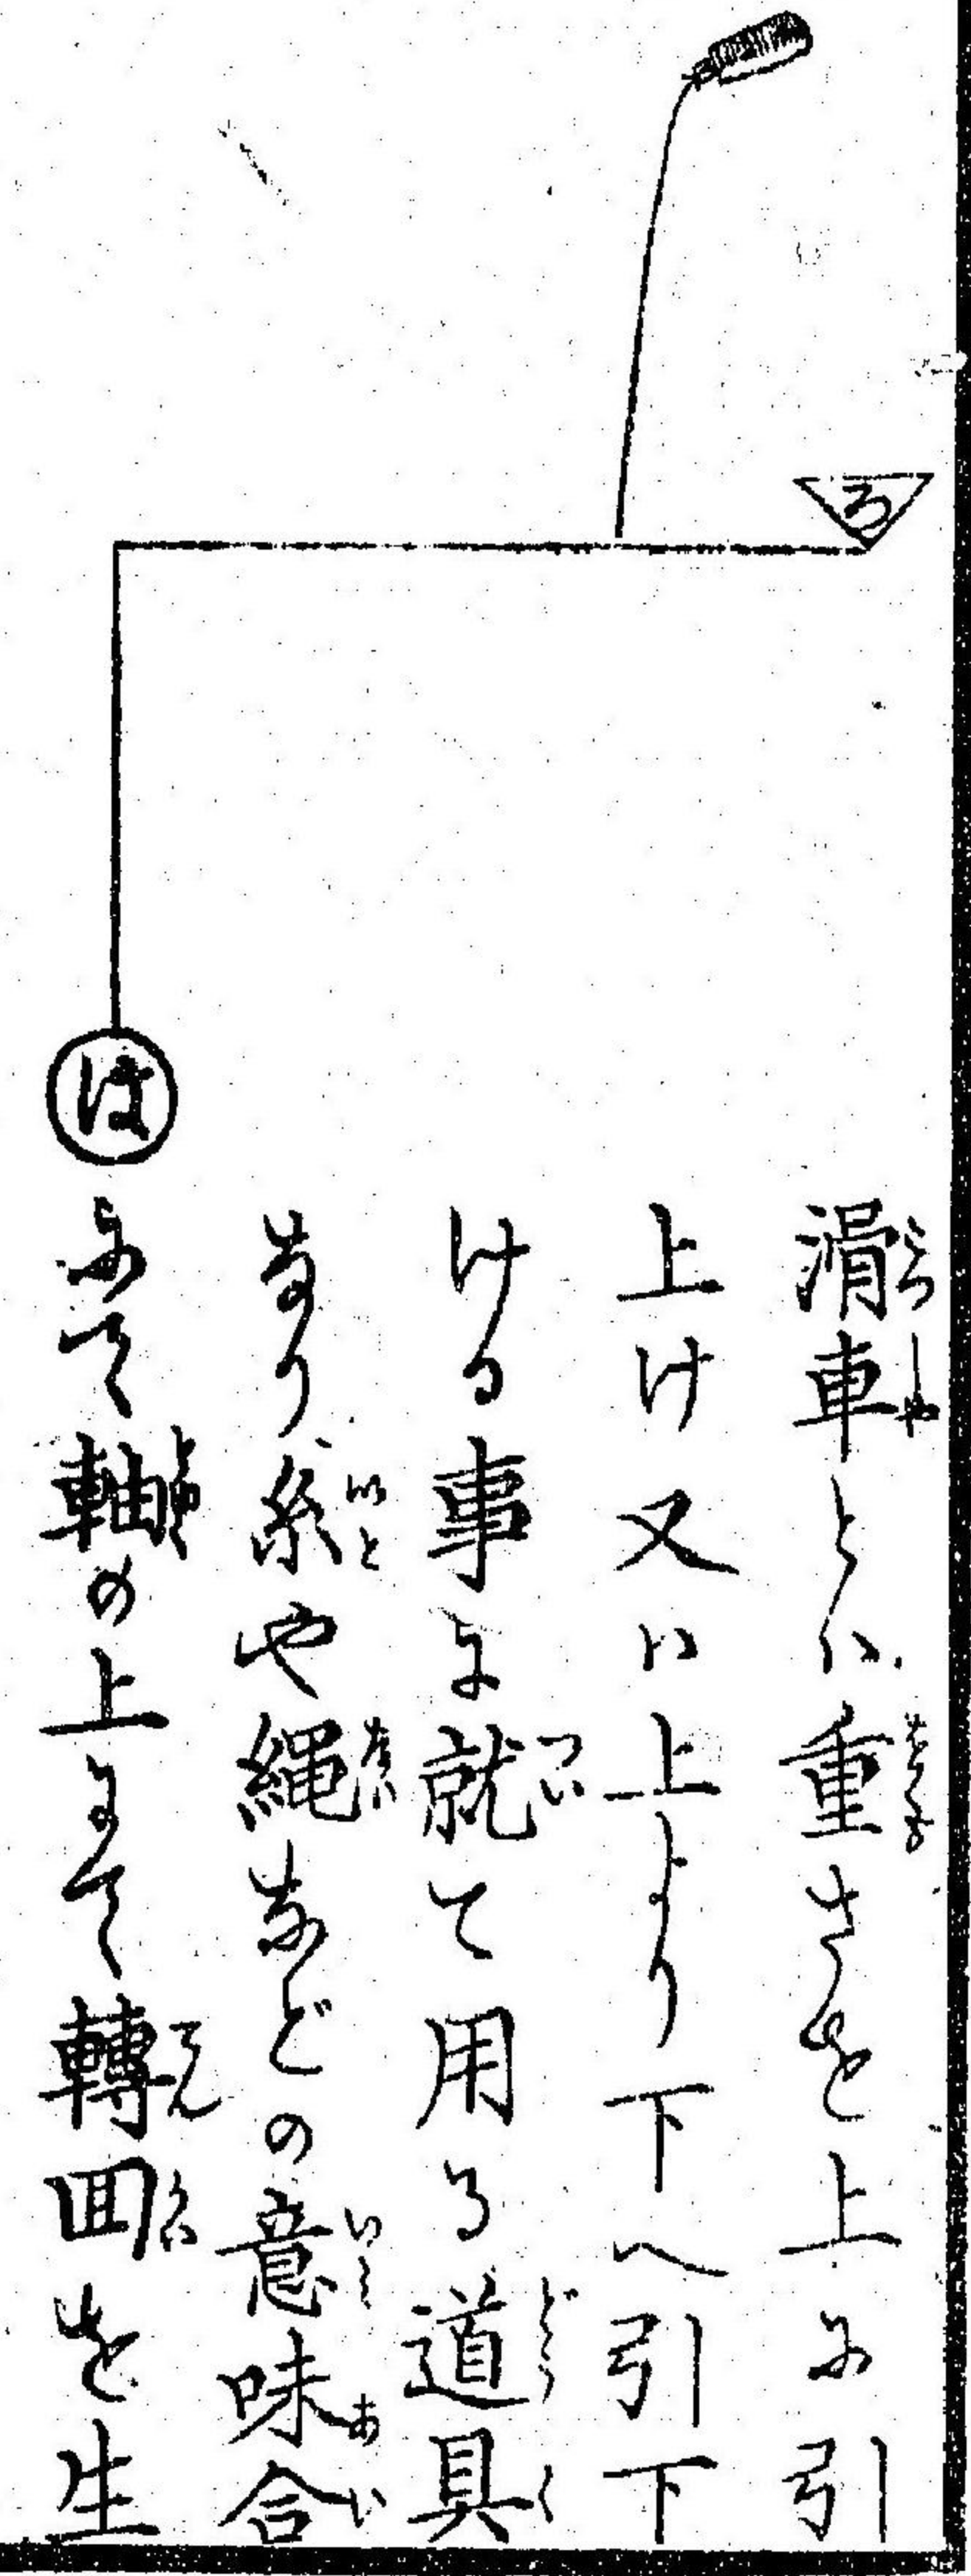 ろ
滑車とハ重さを上に引
上け又ハ上より下へ引下
ける事に就て用る道具
なり糸や縄などの意味合
ほ
にて軸の上にて轉回を生